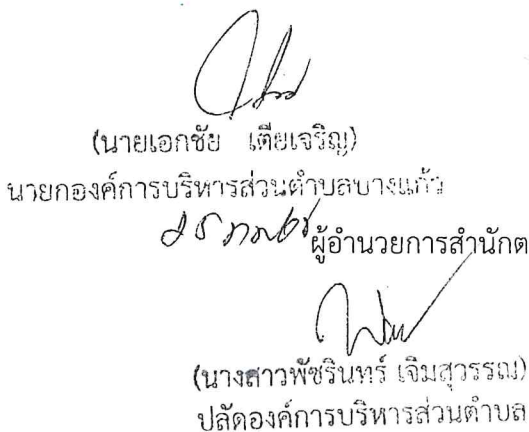 (นายเอกชัย เตียเจริญ)
นายกองค์การบริหารส่วนตำบลบางแก้ว
ผู้อำนวยการสำนักต
(นางสาวพัชรินทร์ เจิมสุวรรณ)
ปลัดองค์การบริหารส่วนตำบล